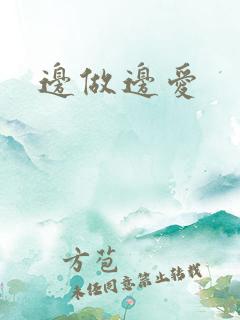 邊做邊愛
方苞
未经同意禁止转载